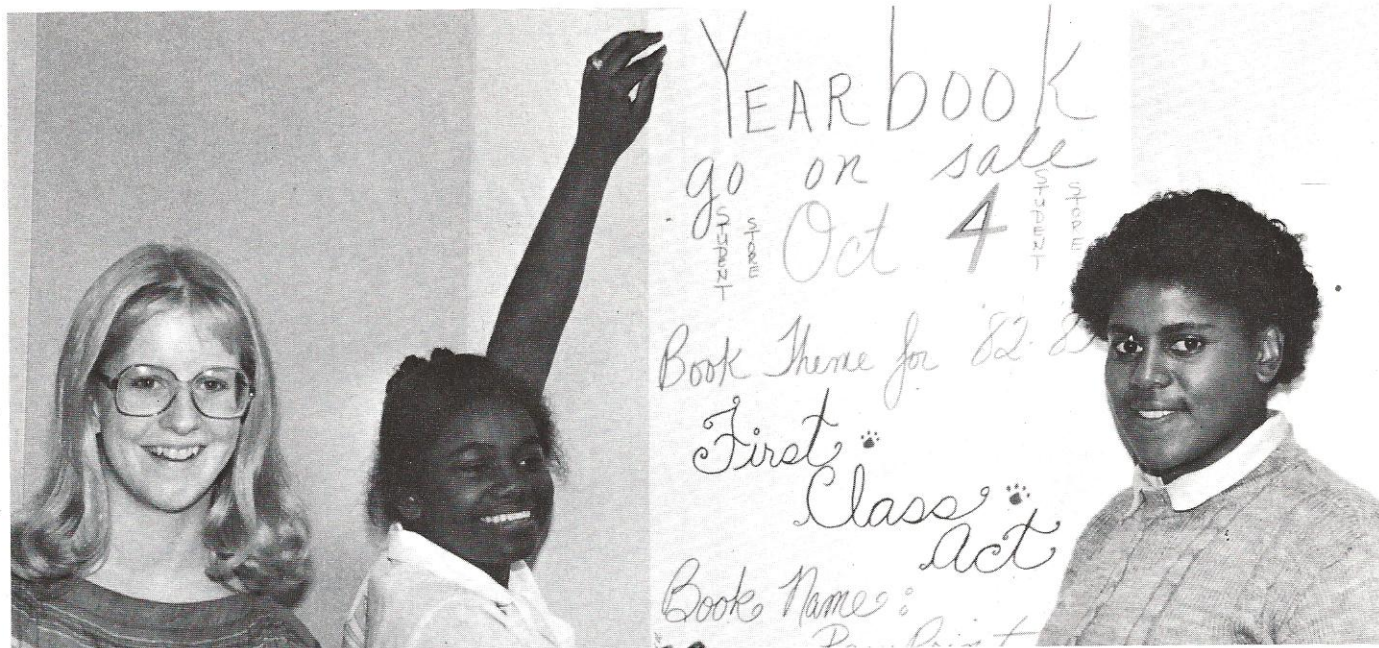 YEARbook
go on sale
STUDENT STORE
Oct 4
STUDENT STORE
Book Theme for '82-8
First
Class
Act
Book Name:
Paw Print